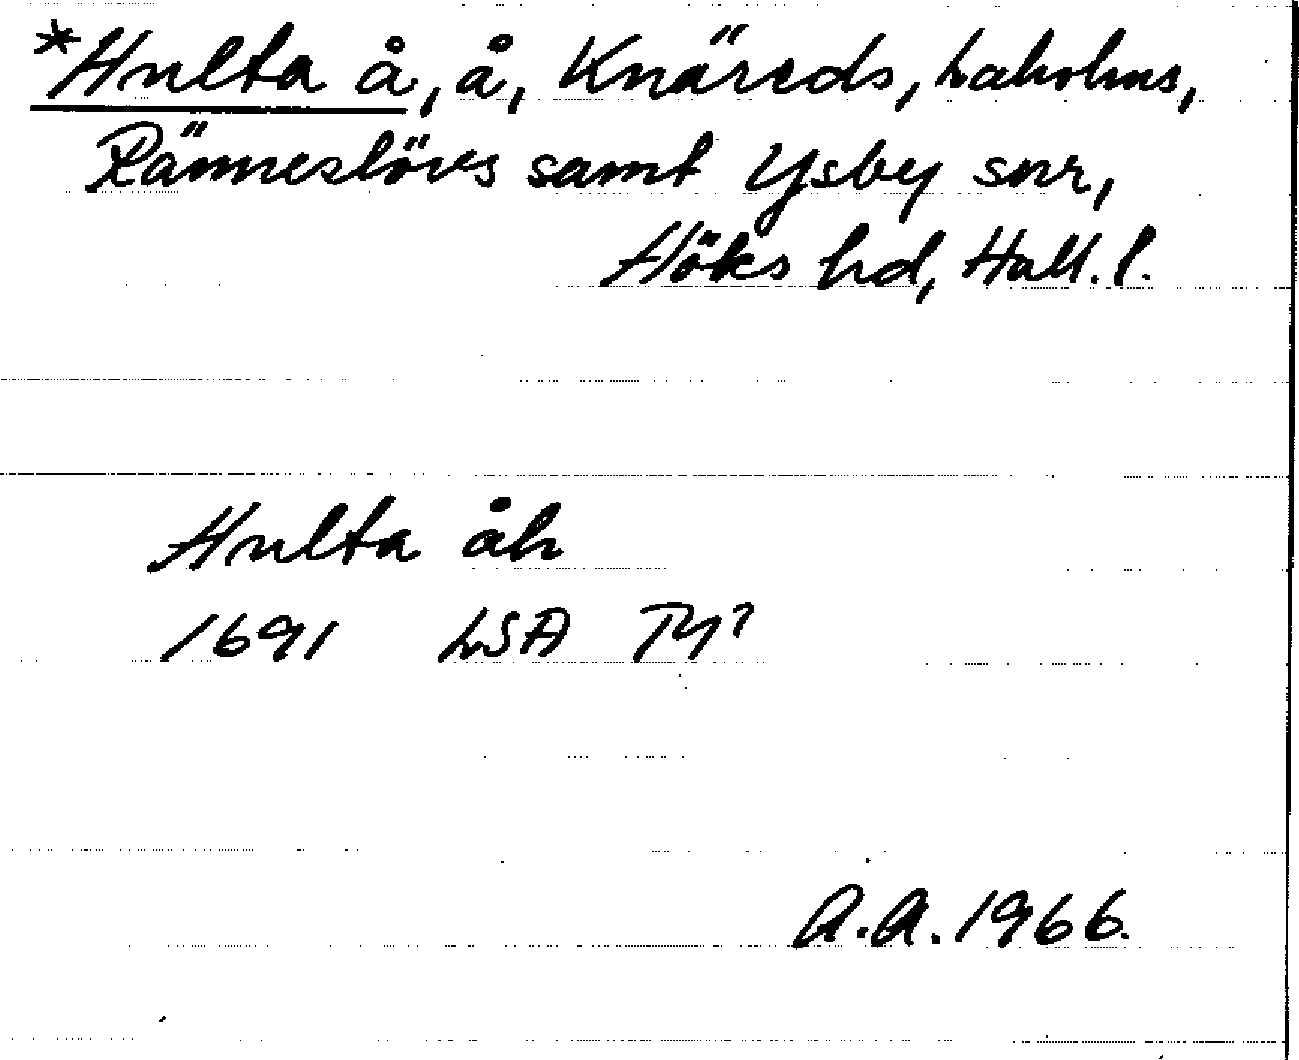 *Hulta å, å, Knäreds, Laholms,
Ränneslövs samt Ysby snr,
Höks hd, Hall. l.
Hulta åh
1691 LSA T4¹
A.A. 1966.